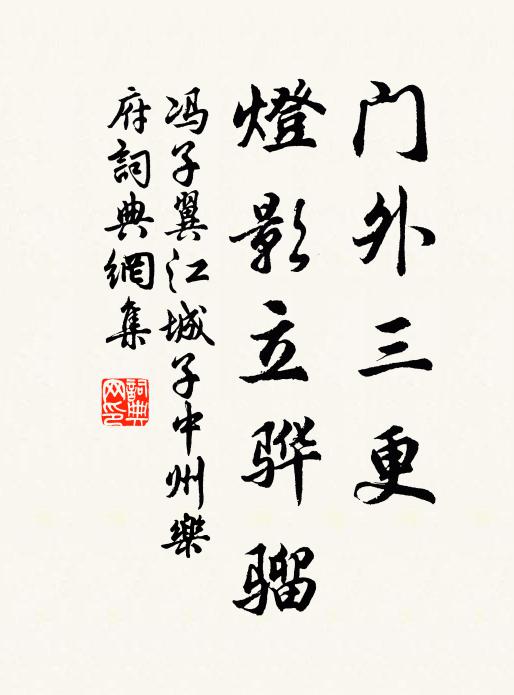 门外三更
燈影立骅骝
冯子翼江城子中州樂
府詞典網集
詞典网印